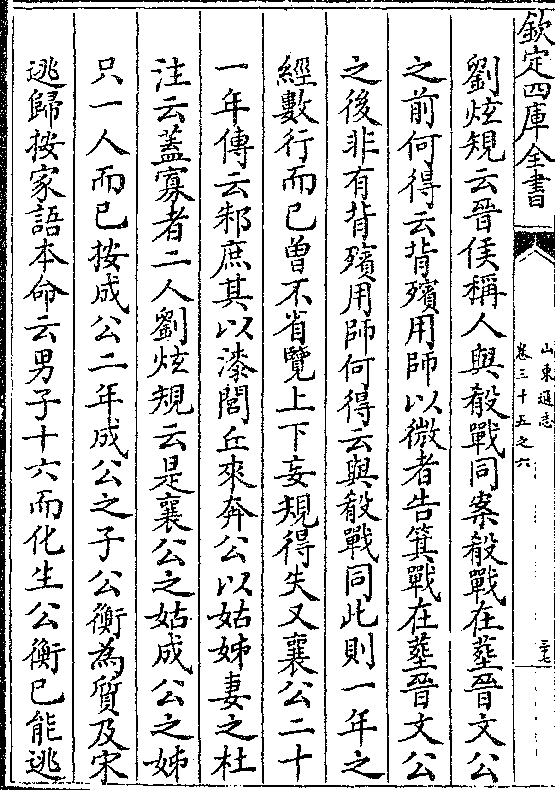 欽定四庫全書
山東通志
卷三十五之六
劉炫規云晉侯稱人與殽戰同案殽戰在塟晉文公
之前何得云背殯用師以微者告箕戰在塟晉文公
之後非有背殯用師何得云與殽戰同此則一年之
經數行而已曽不省覽上下妄規得失又襄公二十
一年傳云邾庶其以漆閭丘來奔公以姑姊妻之杜
注云蓋寡者二人劉炫規云是襄公之姑成公之姊
只一人而已按成公二年成公之子公衡為質及宋
逃歸按家語本命云男子十六而化生公衡已能逃